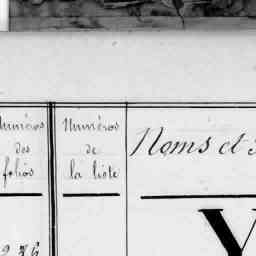 Numéros
des
folios
Numéros
de
la liste
Noms et
Y